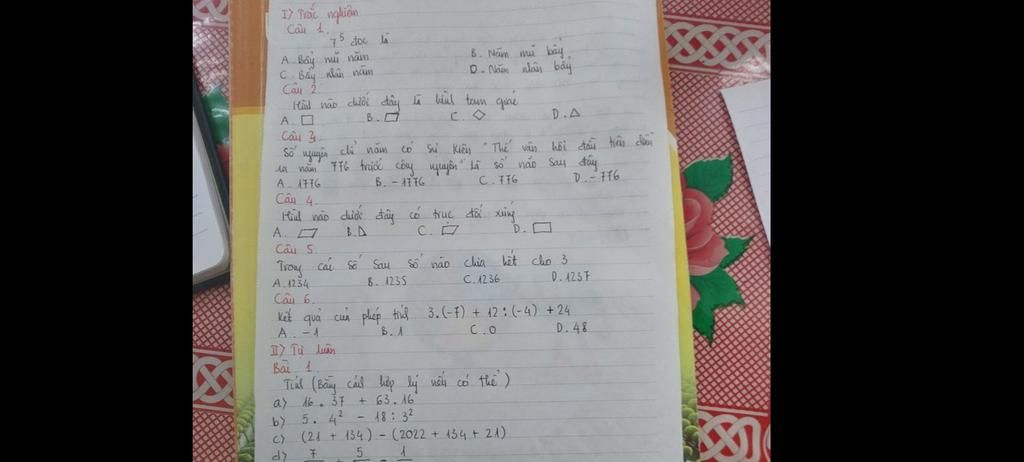 I) Trắc nghiệm
Câu 1.
7⁵ đọc là
A. Bảy mũ năm B. Năm mũ bảy
C. Bảy nhân năm D. Năm nhân bảy
Câu 2.
Hình nào dưới đây là hình tam giác
A. B. C. D.
Câu 3.
Số nguyên chỉ năm có sự kiện "Thế vận hội đầu tiên diễn
ra năm 776 trước công nguyên" là số nào sau đây
A. 1776 B. -1776 C. 776 D. -776
Câu 4.
Hình nào dưới đây có trục đối xứng
A. B. C. D.
Câu 5.
Trong các số sau số nào chia hết cho 3
A. 1234 B. 1235 C. 1236 D. 1237
Câu 6.
Kết quả của phép tính 3.(-7) + 12:(-4) + 24
A. -1 B. 1 C. 0 D. 48
II) Tự luận
Bài 1
Tính (Bằng cách hợp lý nếu có thể)
a) 16.37 + 63.16
b) 5.4² - 18:3²
c) (21 + 134) - (2022 + 134 + 21)
d) 7 + 5 1